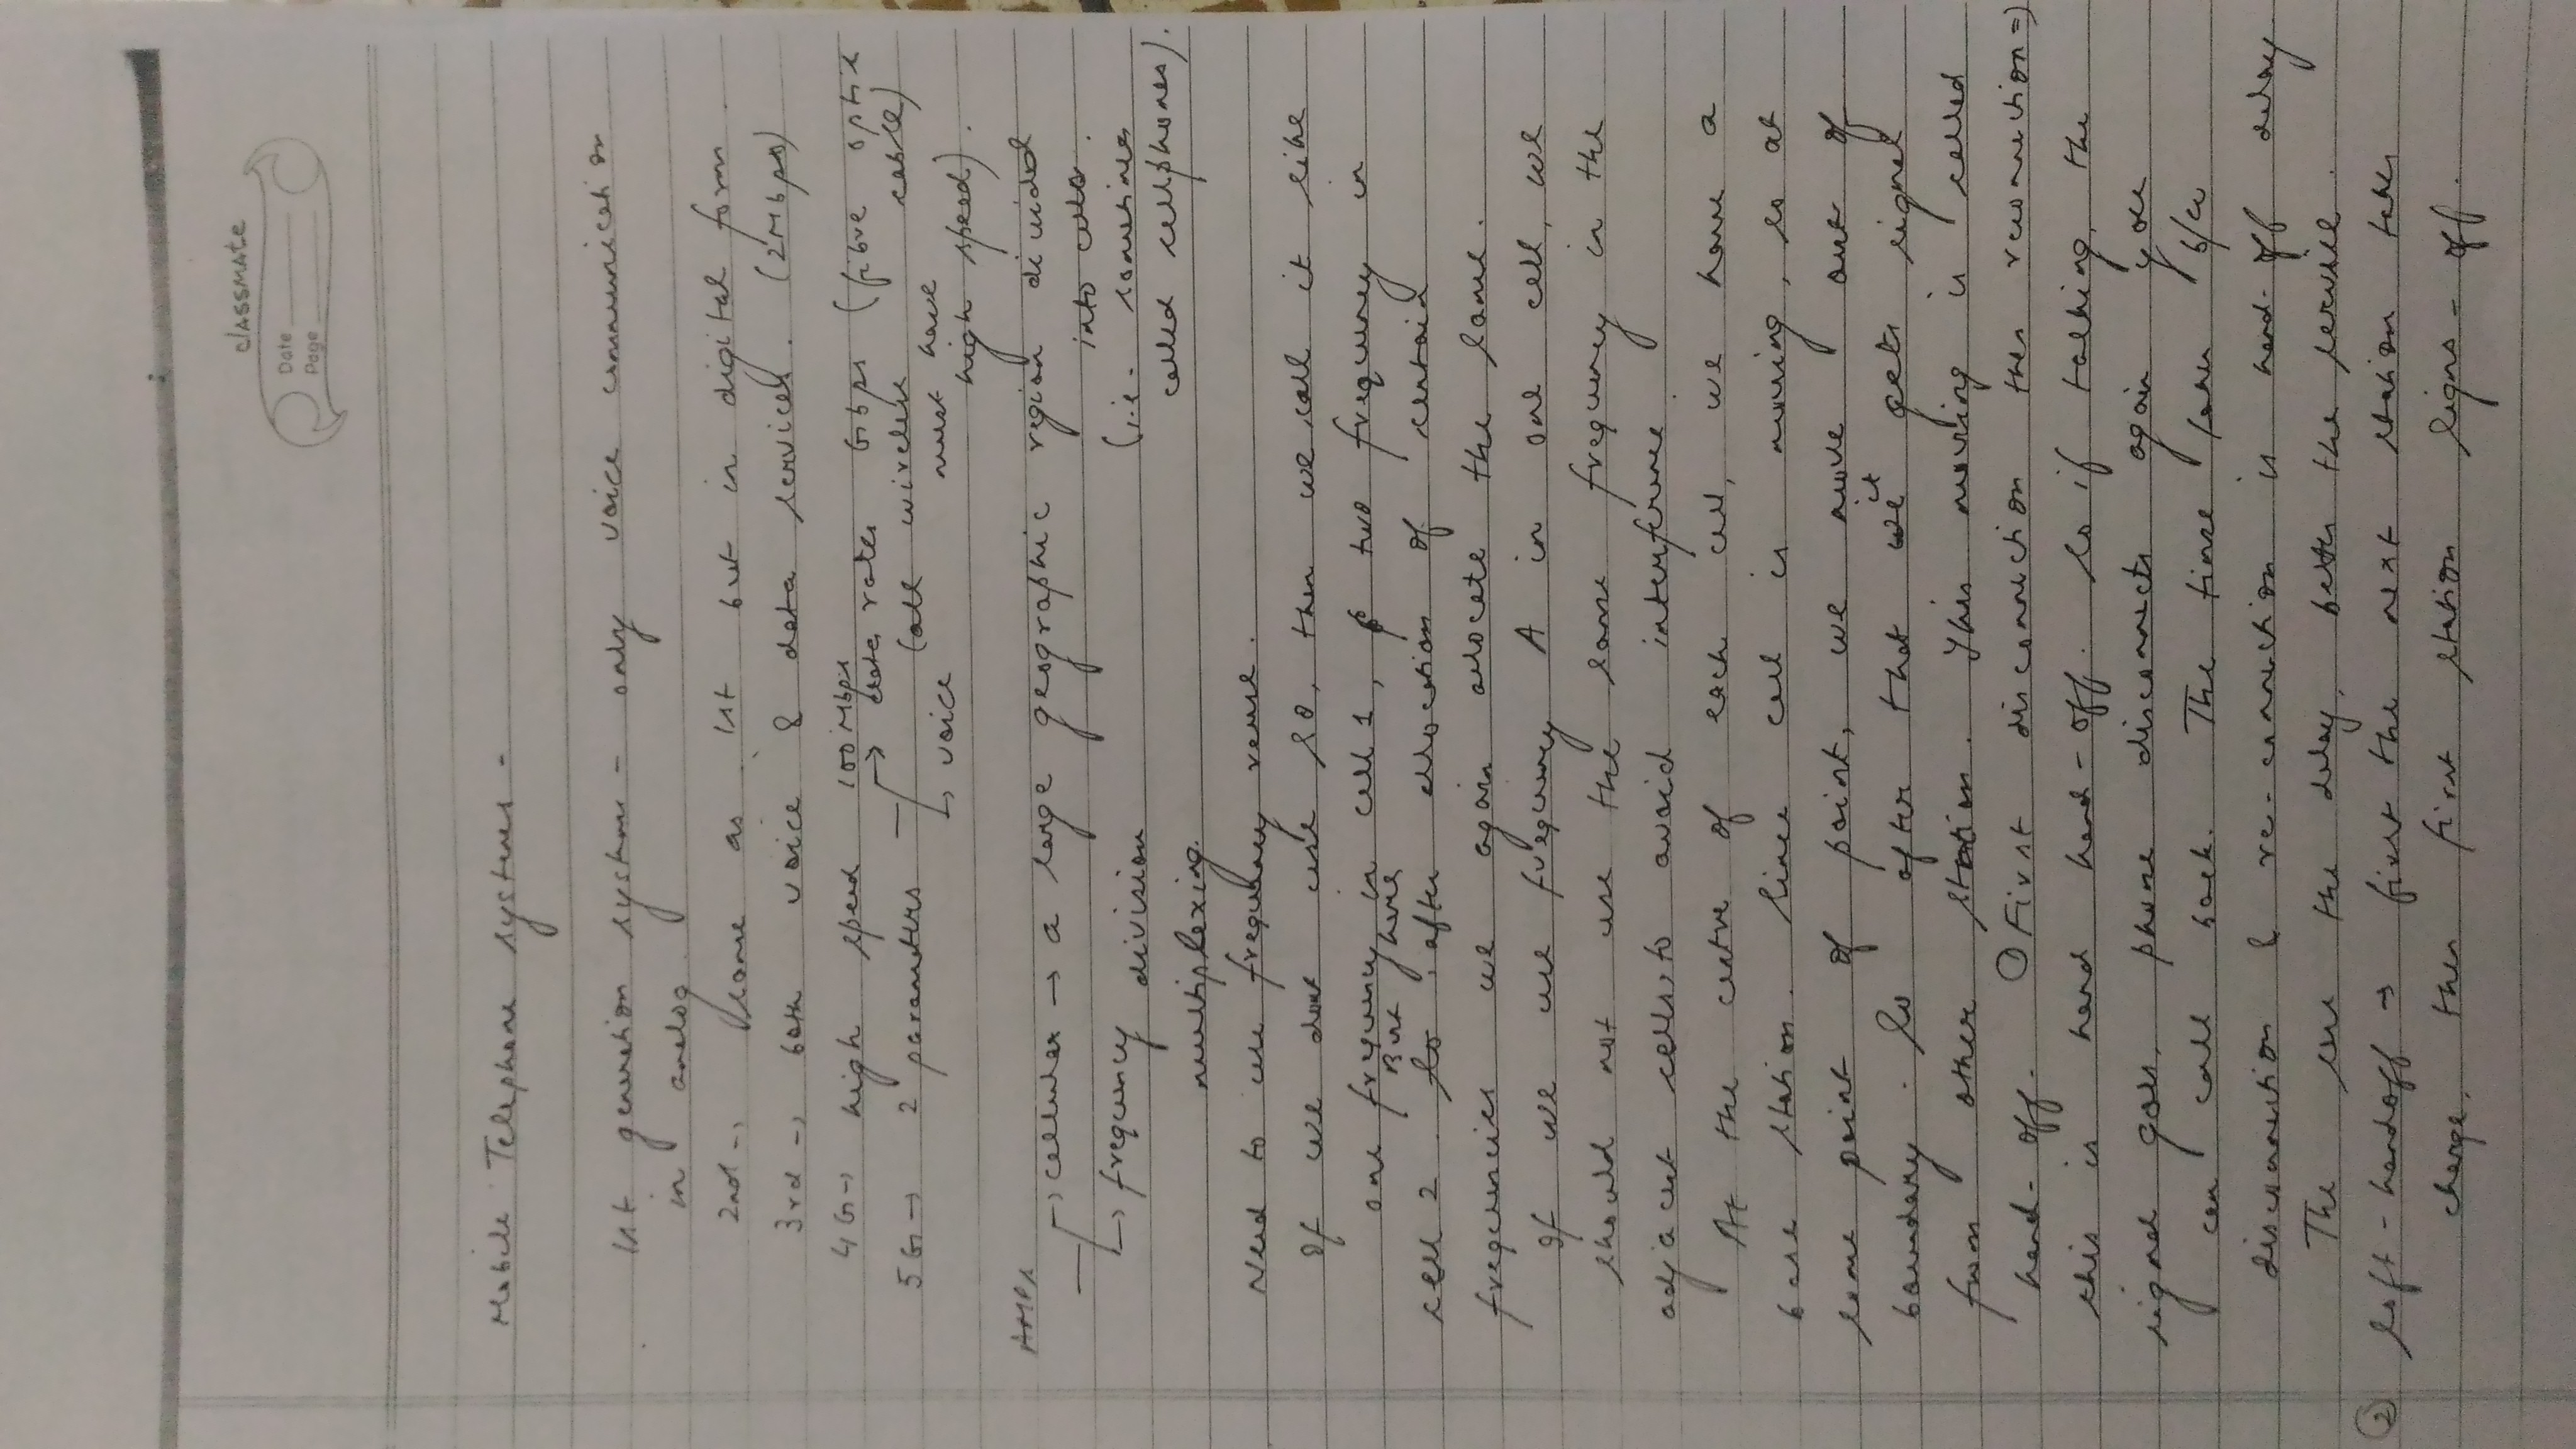 classmate
Date
Page
Mobile Telephone systems -
1st generation systems - only voice communication
in analog.
2nd → same as 1st but in digital form.
3rd → both voice & data services. (2Mbps)
4G → high speed 100 Mbps
5G → 2 parameters → data rates Gbps (fibre optic cable)
(all wireless must have high speed).
→ voice
AMPS
→ cellular → a large geographic region divided
into cells.
(i.e. sometimes
called cellphones).
→ frequency division
multiplexing.
Need to use frequency reuse.
If we dont use so, then we call it like
one frequency in cell 1, two frequency in
cell 2. But here after allocation of certain
frequencies we again allocate the same.
If we use frequency A in one cell, we
should not use the same frequency in the
adjacent cells, to avoid interference.
At the centre of each cell, we have a
base station. Since cell is moving, so at
some point of point, we move out of
boundary. So after that it gets signal
from other station. This moving is called
hand-off. ① First disconnection then reconnection ⇒
this is hard hand-off. So if talking, the
signal goes, phone disconnects again you
can call back. The time taken b/w
disconnection & re-connection is hand-off delay
The less the delay, better the service.
② Soft-handoff → first the next station takes
charge, then first station signs-off.